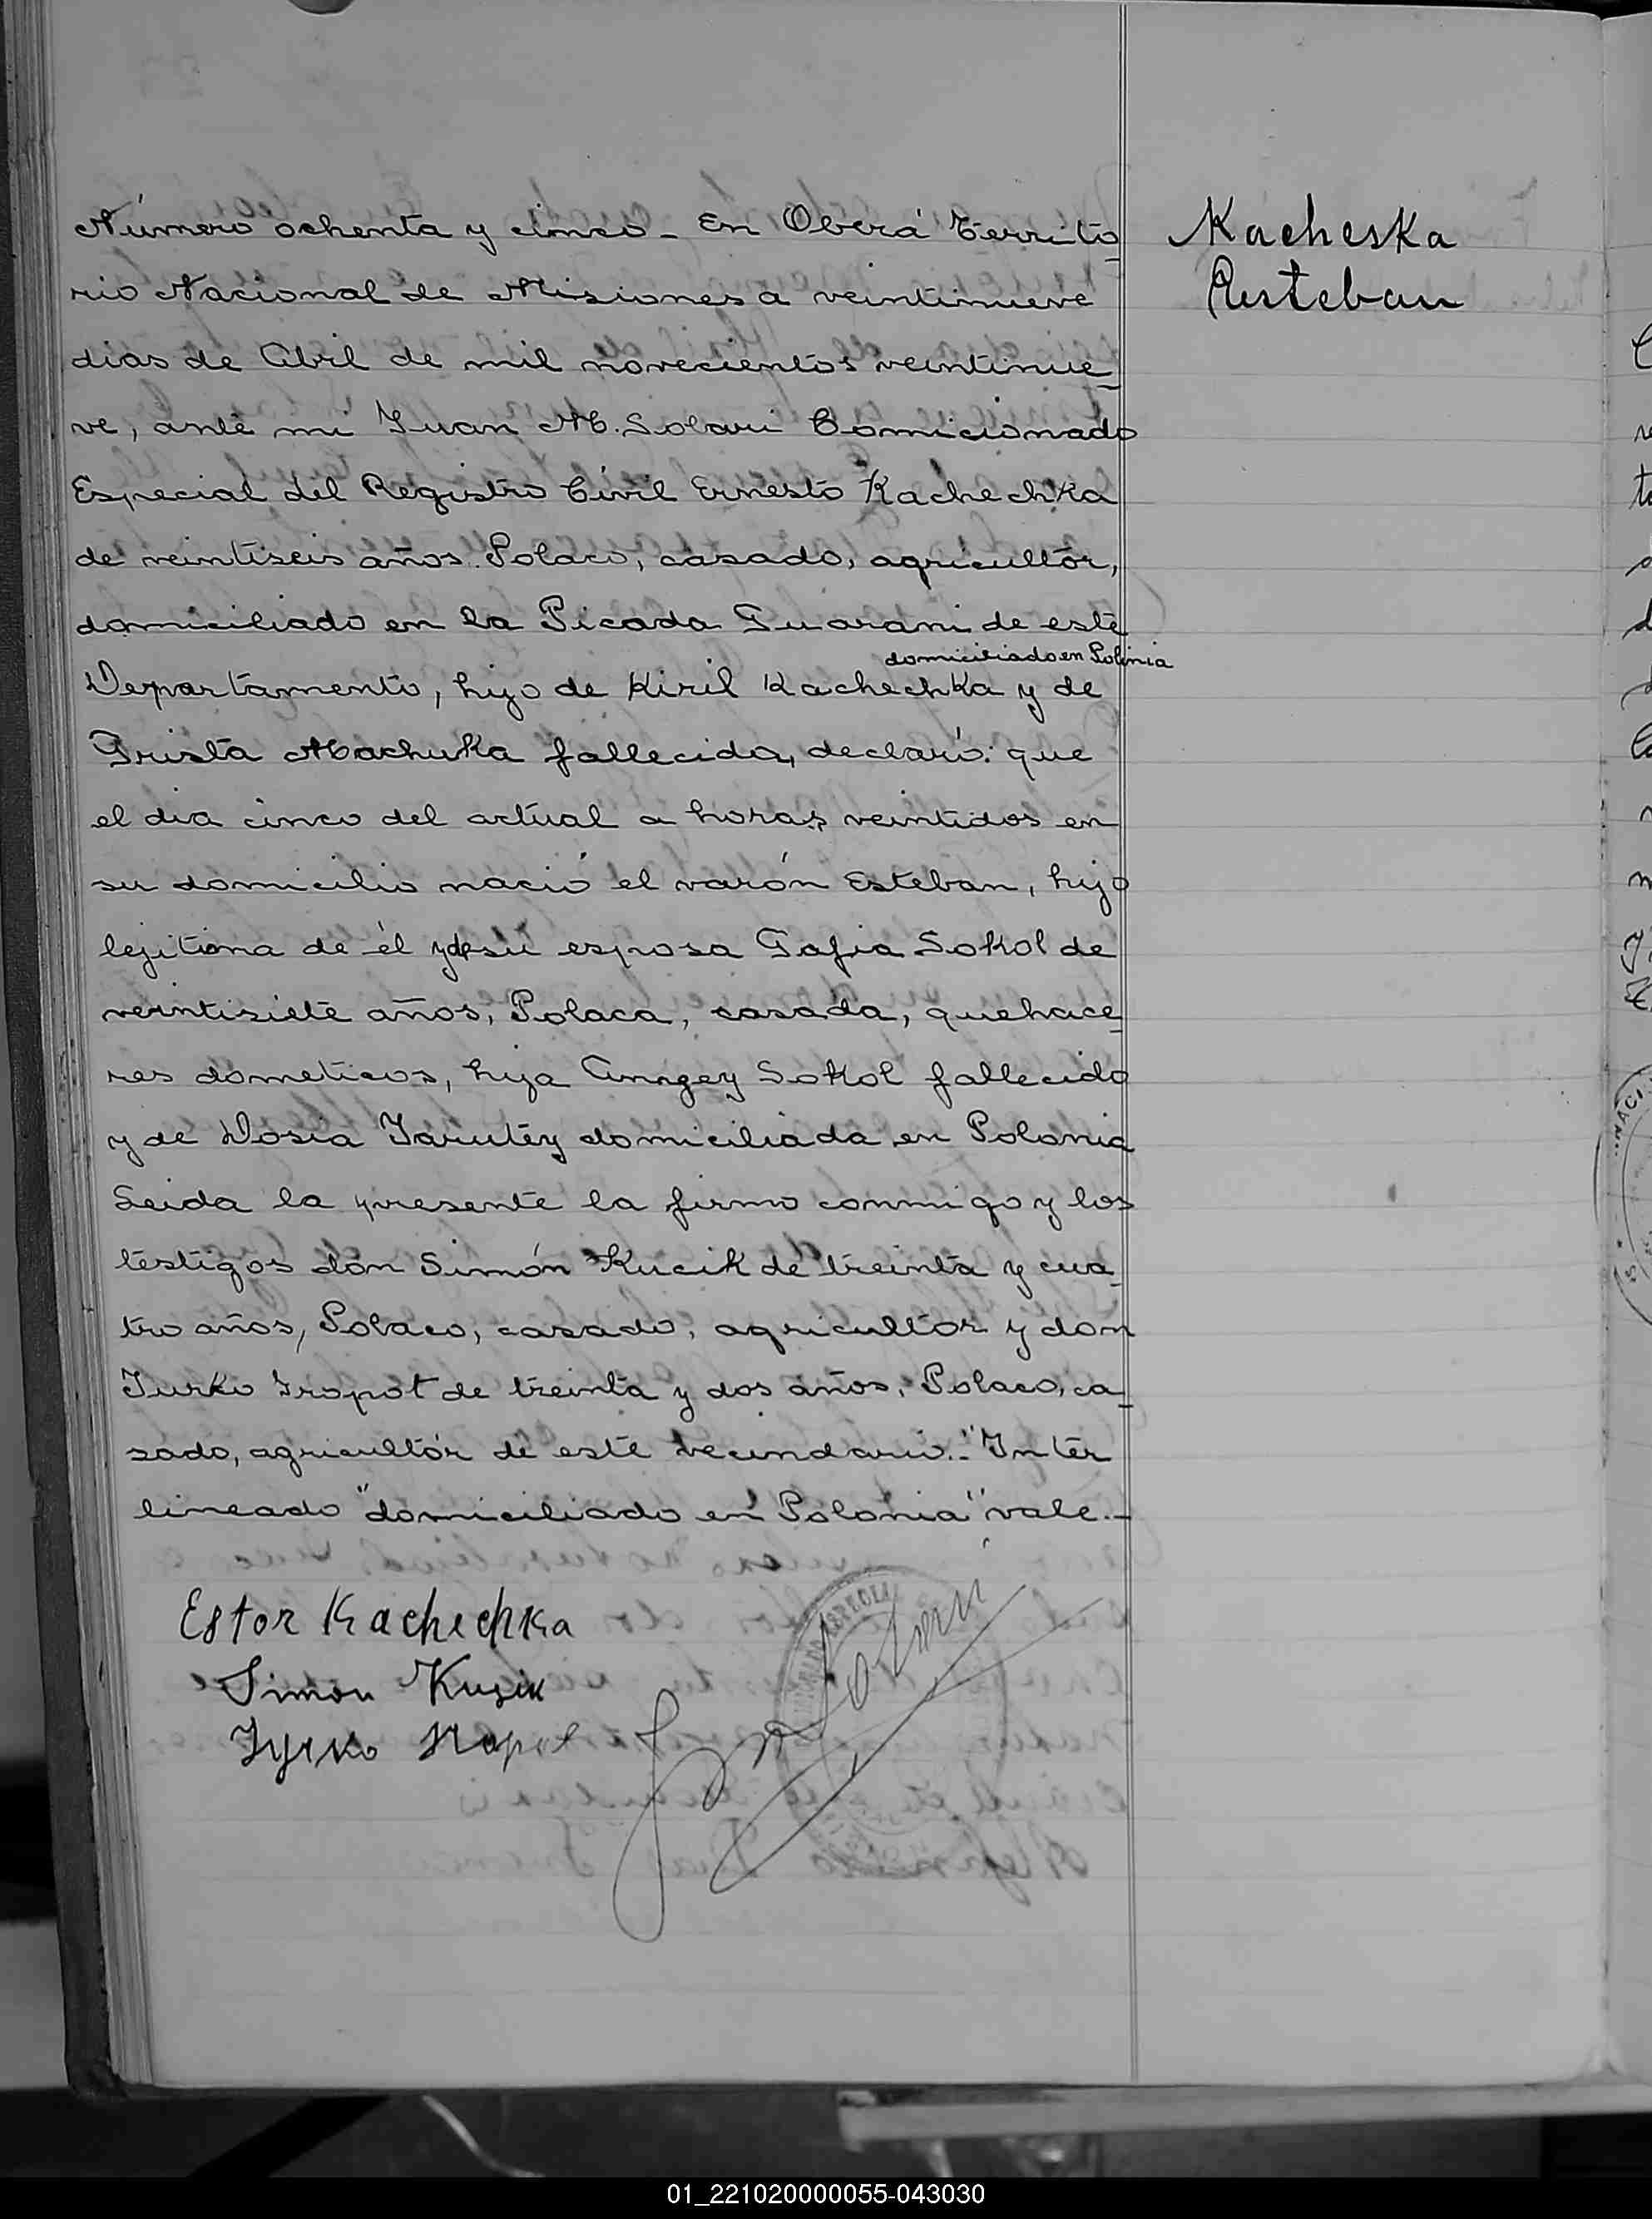 Número ochenta y cinco - En Oberá Territo-
rio Nacional de Misiones a veintinueve
dias de Abril de mil novecientos veintinue-
ve, ante mi Juan M. Solari Comicionado
Especial del Registro Civil Ernesto Kachechka
de veintiseis años. Polaco, casado, agricultor,
domiciliado en la Picada Guarani de este
domiciliado en Polinia
Departamento, hijo de Kiril Kachechka y de
Grista Machuka fallecida, declaró: que
el dia cinco del actual a horas veintidos en
su domicilio nació el varón Esteban, hijo
lejitima de él y de su esposa Gafia Sokol de
veintisiete años, Polaca, casada, quehace-
res dometicos, hija Anngey Sokol fallecido
y de Dosia Jarutey domiciliada en Polonia
Leida la presente la firmo conmigo y los
testigos don Simón Kucik de treinta y cua-
tro años, Polaco, casado, agricultor y don
Jurko Hropot de treinta y dos años, Polaco, ca-
sado, agricultor de este vecindario.- "Inter
lineado "domiciliado en Polonia" vale.-
Kacheska
Esteban
Estor Kachechka
Simon Kusik
01_221020000055-043030